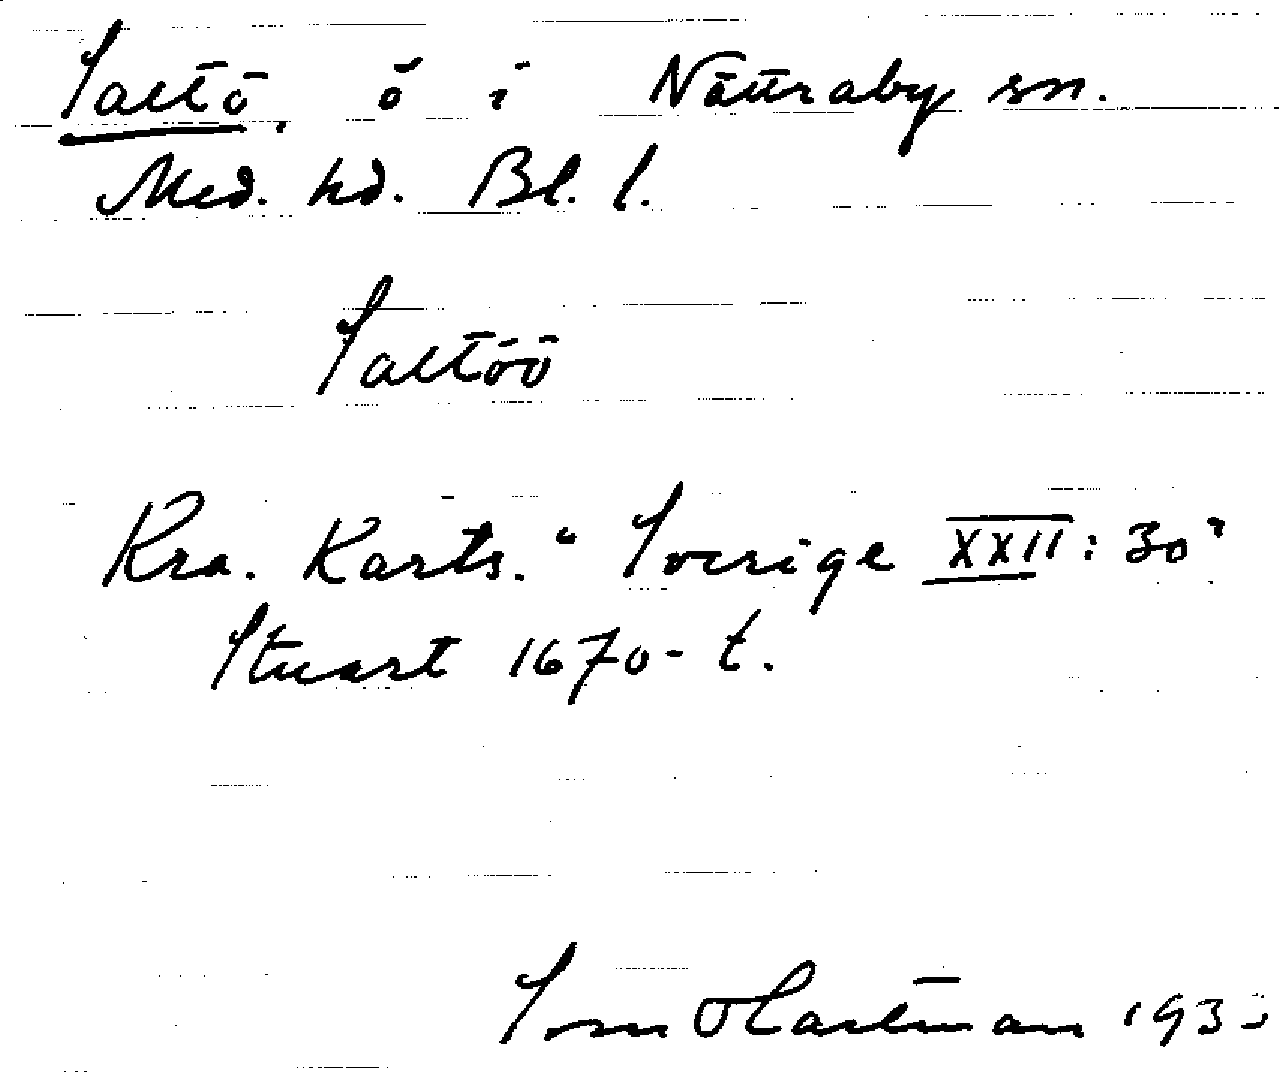 Saltö, ö i Nättraby sn.
Med. hd. Bl. l.
Saltöö
Kra. Karts. "Sverige XXII: 30"
Stuart 1670-t.
Sven Hartman 193